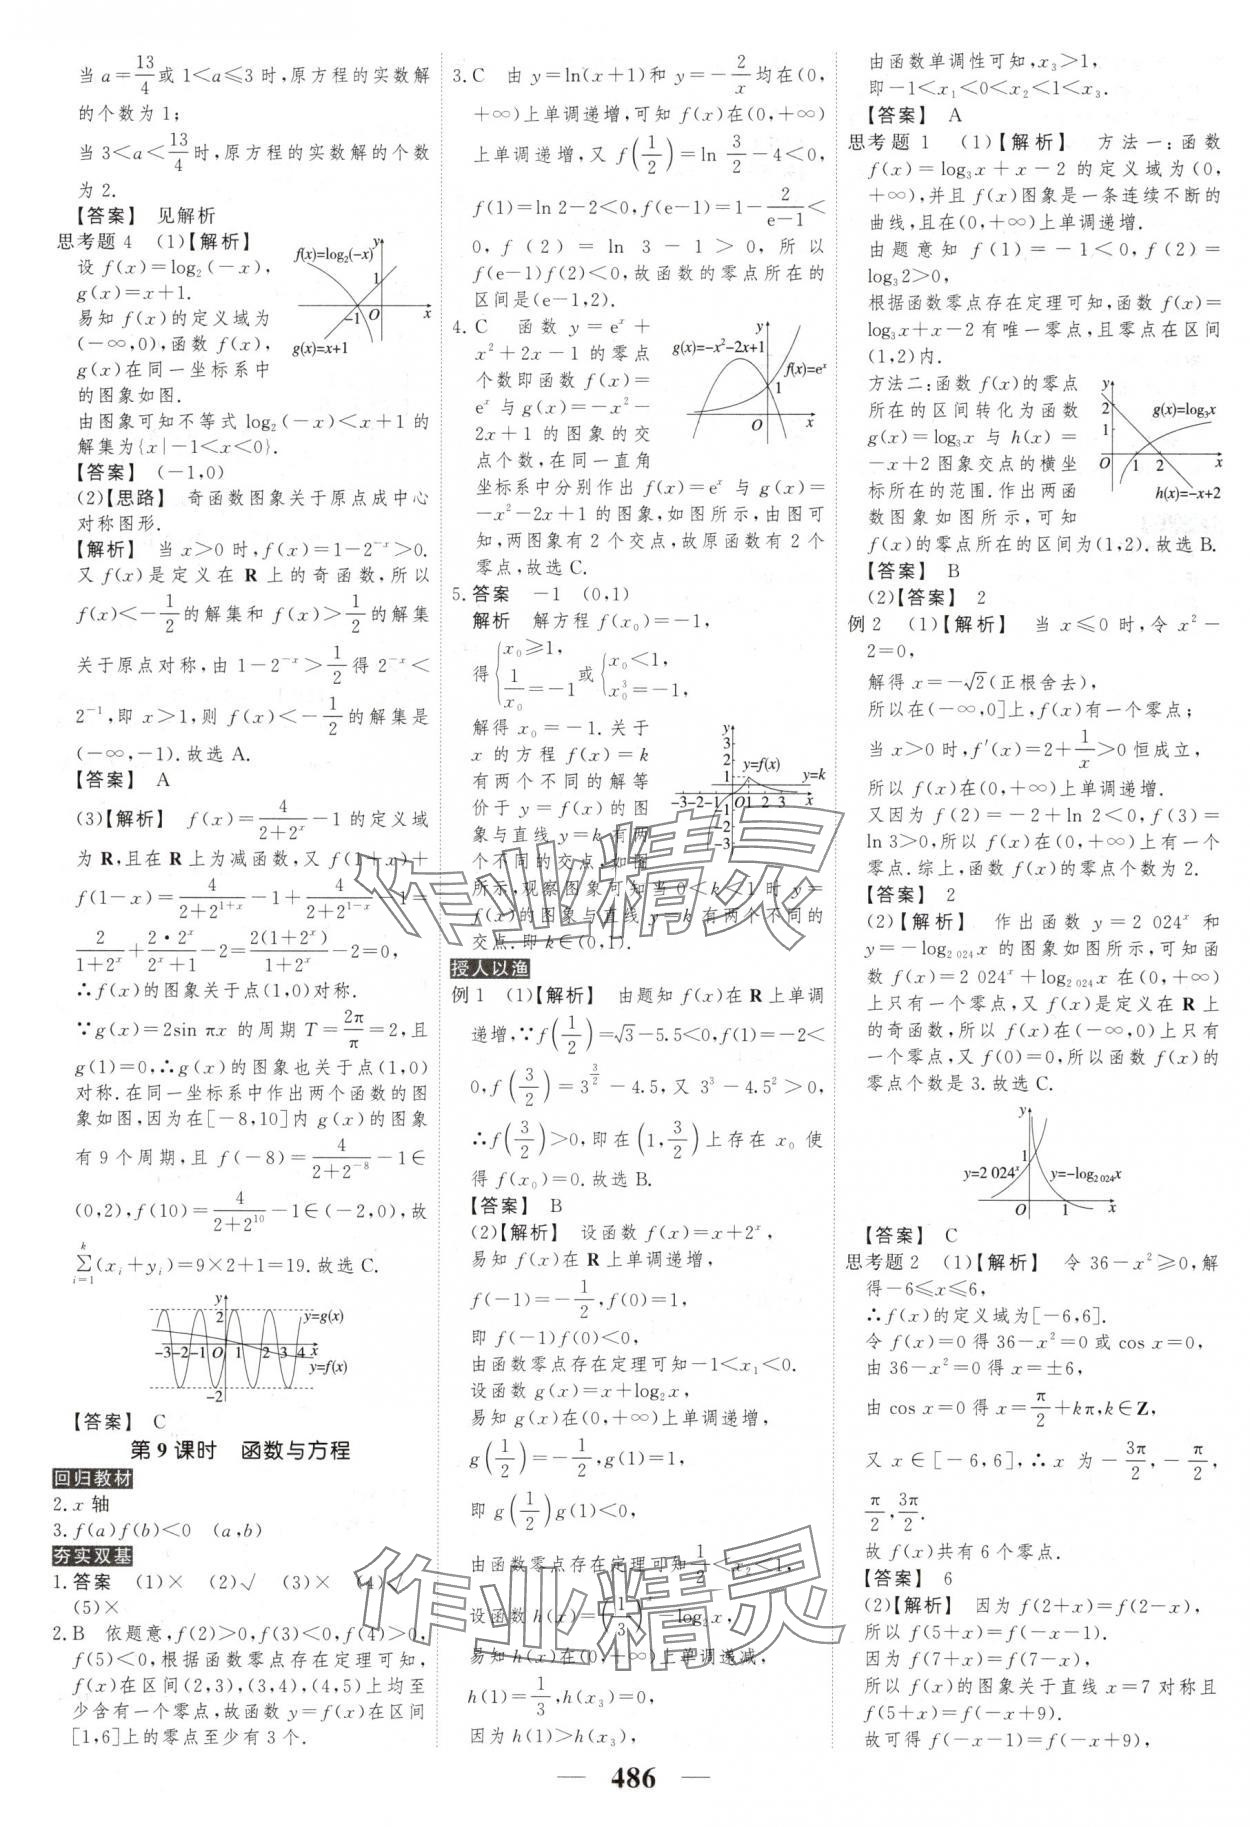 当 a=13/4 或 1<a≤3 时,原方程的实数解
的个数为 1;
当 3<a<13/4 时,原方程的实数解的个数
为 2.
【答案】 见解析
思考题 4 (1)【解析】
设 f(x)=log₂(-x),
g(x)=x+1.
易知 f(x)的定义域为
(-∞,0),函数 f(x),
g(x)在同一坐标系中
的图象如图.
f(x)=log₂(-x) y 1 -1 O x g(x)=x+1
由图象可知不等式 log₂(-x)<x+1 的
解集为{x|-1<x<0}.
【答案】 (-1,0)
(2)【思路】 奇函数图象关于原点成中心
对称图形.
【解析】 当 x>0 时,f(x)=1-2⁻ˣ>0.
又 f(x)是定义在 R 上的奇函数,所以
f(x)<-1/2 的解集和 f(x)>1/2 的解集
关于原点对称,由 1-2⁻ˣ>1/2 得 2⁻ˣ<
2⁻¹,即 x>1,则 f(x)<-1/2 的解集是
(-∞,-1).故选 A.
【答案】 A
(3)【解析】 f(x)=4/(2+2ˣ)-1 的定义域
为 R,且在 R 上为减函数,又 f(1+x)+
f(1-x)=4/(2+2¹⁺ˣ)-1+4/(2+2¹⁻ˣ)-1=
2/(1+2ˣ)+2·2ˣ/(2ˣ+1)-2=2(1+2ˣ)/(1+2ˣ)-2=0,
∴f(x)的图象关于点(1,0)对称.
∵g(x)=2sin πx 的周期 T=2π/π=2,且
g(1)=0,∴g(x)的图象也关于点(1,0)
对称.在同一坐标系中作出两个函数的图
象如图,因为在[-8,10]内 g(x)的图象
有 9 个周期,且 f(-8)=4/(2+2⁻⁸)-1∈
(0,2),f(10)=4/(2+2¹⁰)-1∈(-2,0),故
∑ᵢ₌₁ᵏ(xᵢ+yᵢ)=9×2+1=19.故选 C.
y 2 y=g(x) -3-2-1 O 1 2 3 4 x y=f(x) -2
【答案】 C
第 9 课时 函数与方程
回归教材
2.x 轴
3.f(a)f(b)<0 (a,b)
夯实双基
1.答案 (1)× (2)√ (3)× (4)√
(5)×
2.B 依题意,f(2)>0,f(3)<0,f(4)>0,
f(5)<0,根据函数零点存在定理可知,
f(x)在区间(2,3),(3,4),(4,5)上均至
少含有一个零点,故函数 y=f(x)在区间
[1,6]上的零点至少有 3 个.
3.C 由 y=ln(x+1)和 y=-2/x 均在(0,
+∞)上单调递增,可知 f(x)在(0,+∞)
上单调递增,又 f(1/2)=ln 3/2-4<0,
f(1)=ln 2-2<0,f(e-1)=1-2/(e-1)<
0,f(2)=ln 3-1>0,所以
f(e-1)f(2)<0,故函数的零点所在的
区间是(e-1,2).
4.C 函数 y=eˣ+
x²+2x-1 的零点
个数即函数 f(x)=
eˣ 与 g(x)=-x²-
2x+1 的图象的交
点个数,在同一直角
y g(x)=-x²-2x+1 f(x)=eˣ 1 O x
坐标系中分别作出 f(x)=eˣ 与 g(x)=
-x²-2x+1 的图象,如图所示,由图可
知,两图象有 2 个交点,故原函数有 2 个
零点,故选 C.
5.答案 -1 (0,1)
解析 解方程 f(x₀)=-1,
得{x₀≥1, 1/x₀=-1 或{x₀<1, x₀³=-1,
解得 x₀=-1.关于
x 的方程 f(x)=k
有两个不同的解等
价于 y=f(x)的图
象与直线 y=k 有两
个不同的交点,如图
y 3 2 1 y=f(x) y=k -3-2-1 O 1 2 3 x -1 -2 -3
所示,观察图象可知当 0<k<1 时 y=
f(x)的图象与直线 y=k 有两个不同的
交点.即 k∈(0,1).
授人以渔
例 1 (1)【解析】 由题知 f(x)在 R 上单调
递增,∵f(1/2)=√3-5.5<0,f(1)=-2<
0,f(3/2)=3^(3/2)-4.5,又 3³-4.5²>0,
∴f(3/2)>0,即在(1,3/2)上存在 x₀ 使
得 f(x₀)=0.故选 B.
【答案】 B
(2)【解析】 设函数 f(x)=x+2ˣ,
易知 f(x)在 R 上单调递增,
f(-1)=-1/2,f(0)=1,
即 f(-1)f(0)<0,
由函数零点存在定理可知-1<x₁<0.
设函数 g(x)=x+log₂x,
易知 g(x)在(0,+∞)上单调递增,
g(1/2)=-1/2,g(1)=1,
即 g(1/2)g(1)<0,
由函数零点存在定理可知 1/2<x₂<1.
设函数 h(x)=(1/3)ˣ-log₂x,
易知 h(x)在(0,+∞)上单调递减,
h(1)=1/3,h(x₃)=0,
因为 h(1)>h(x₃),
由函数单调性可知,x₃>1,
即-1<x₁<0<x₂<1<x₃.
【答案】 A
思考题 1 (1)【解析】 方法一:函数
f(x)=log₃x+x-2 的定义域为(0,
+∞),并且 f(x)图象是一条连续不断的
曲线,且在(0,+∞)上单调递增.
由题意知 f(1)=-1<0,f(2)=
log₃2>0,
根据函数零点存在定理可知,函数 f(x)=
log₃x+x-2 有唯一零点,且零点在区间
(1,2)内.
方法二:函数 f(x)的零点
所在的区间转化为函数
g(x)=log₃x 与 h(x)=
-x+2 图象交点的横坐
标所在的范围.作出两函
数图象如图所示,可知
y 2 1 g(x)=log₃x O 1 2 x h(x)=-x+2
f(x)的零点所在的区间为(1,2).故选 B.
【答案】 B
(2)【答案】 2
例 2 (1)【解析】 当 x≤0 时,令 x²-
2=0,
解得 x=-√2(正根舍去),
所以在(-∞,0]上,f(x)有一个零点;
当 x>0 时,f′(x)=2+1/x>0 恒成立,
所以 f(x)在(0,+∞)上单调递增.
又因为 f(2)=-2+ln 2<0,f(3)=
ln 3>0,所以 f(x)在(0,+∞)上有一个
零点.综上,函数 f(x)的零点个数为 2.
【答案】 2
(2)【解析】 作出函数 y=2 024ˣ 和
y=-log₂ ₀₂₄x 的图象如图所示,可知函
数 f(x)=2 024ˣ+log₂ ₀₂₄x 在(0,+∞)
上只有一个零点,又 f(x)是定义在 R 上
的奇函数,所以 f(x)在(-∞,0)上只有
一个零点,又 f(0)=0,所以函数 f(x)的
零点个数是 3.故选 C.
y 1 y=2 024ˣ y=-log₂ ₀₂₄x O 1 x
【答案】 C
思考题 2 (1)【解析】 令 36-x²≥0,解
得-6≤x≤6,
∴f(x)的定义域为[-6,6].
令 f(x)=0 得 36-x²=0 或 cos x=0,
由 36-x²=0 得 x=±6,
由 cos x=0 得 x=π/2+kπ,k∈Z,
又 x∈[-6,6],∴x 为 -3π/2,-π/2,
π/2,3π/2.
故 f(x)共有 6 个零点.
【答案】 6
(2)【解析】 因为 f(2+x)=f(2-x),
所以 f(5+x)=f(-x-1).
因为 f(7+x)=f(7-x),
所以 f(x)的图象关于直线 x=7 对称且
f(5+x)=f(-x+9).
故可得 f(-x-1)=f(-x+9),
— 486 —
作业精灵
作业精灵